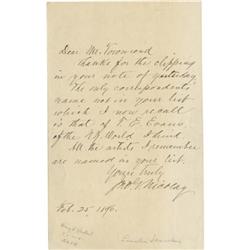 Dear Mr. Townsend
Thanks for the clipping
in your note of yesterday
The only correspondents
name not in your list
which I now recall
is that of T. E. Evans
of the N.Y. World I think
All the artists I remember
are named in your list.
Yours truly
Jno. G. Nicolay
Feb. 25, 1896.